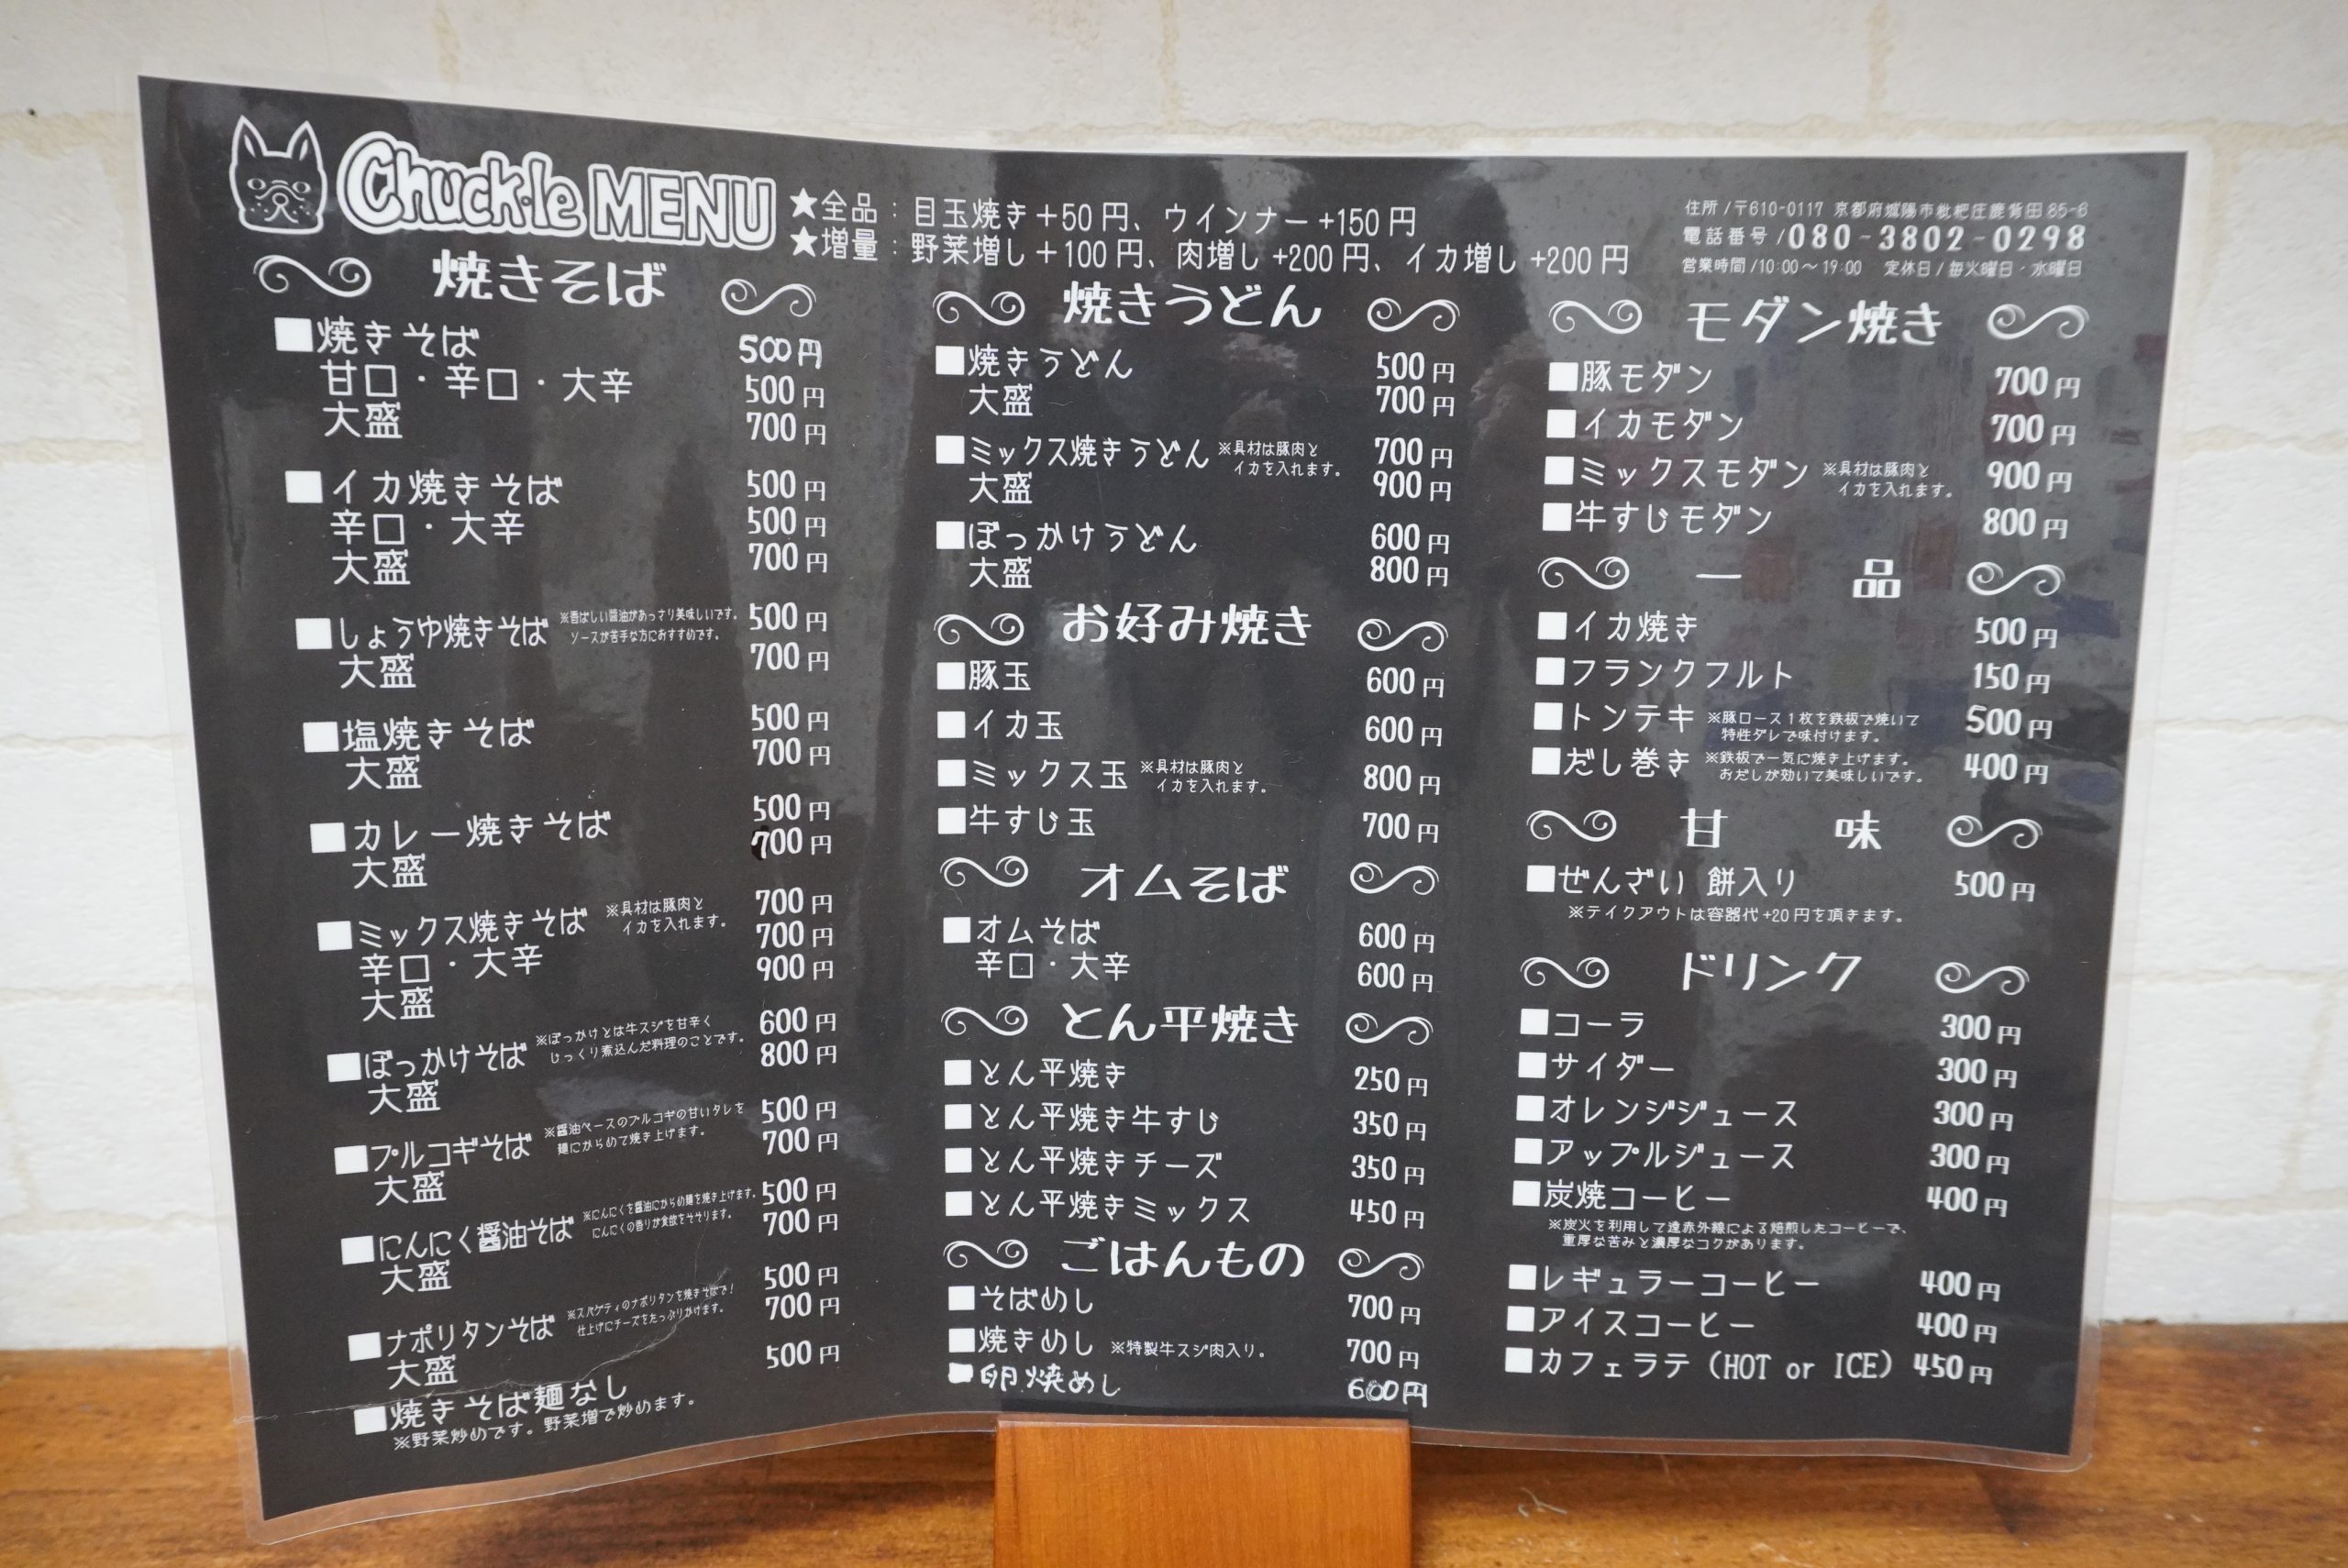 Chuck·le MENU
★全品：目玉焼き+50円、ウインナー+150円
★増量：野菜増し+100円、肉増し+200円、イカ増し+200円
住所/〒610-0117 京都府城陽市枇杷庄鹿背田85-6
電話番号/080-3802-0298
営業時間/10:00～19:00 定休日/毎火曜日・水曜日
焼きそば
■焼きそば 500円
甘口・辛口・大辛 500円
大盛 700円
■イカ焼きそば 500円
辛口・大辛 500円
大盛 700円
■しょうゆ焼きそば ※香ばしい醤油があっさり美味しいです。 500円
ソースが苦手な方におすすめです。
大盛 700円
■塩焼きそば 500円
大盛 700円
■カレー焼きそば 500円
大盛 700円
■ミックス焼きそば ※具材は豚肉と 700円
イカを入れます。
辛口・大辛 700円
大盛 900円
■ぼっかけそば ※ぼっかけとは牛スジを甘辛く 600円
じっくり煮込んだ料理のことです。
大盛 800円
■プルコギそば ※醤油ベースのプルコギの甘いタレを 500円
麺にからめて焼き上げます。
大盛 700円
■にんにく醤油そば ※にんにくを醤油にからめ麺を焼き上げます。 500円
にんにくの香りが食欲をそそります。
大盛 700円
■ナポリタンそば ※スパゲティのナポリタンを焼きそばで！ 500円
仕上げにチーズをたっぷりかけます。
大盛 700円
■焼きそば麺なし 500円
※野菜炒めです。野菜増で炒めます。
焼きうどん
■焼きうどん 500円
大盛 700円
■ミックス焼きうどん ※具材は豚肉と 700円
イカを入れます。
大盛 900円
■ぼっかけうどん 600円
大盛 800円
お好み焼き
■豚玉 600円
■イカ玉 600円
■ミックス玉 ※具材は豚肉と 800円
イカを入れます。
■牛すじ玉 700円
オムそば
■オムそば 600円
辛口・大辛 600円
とん平焼き
■とん平焼き 250円
■とん平焼き牛すじ 350円
■とん平焼きチーズ 350円
■とん平焼きミックス 450円
ごはんもの
■そばめし 700円
■焼きめし ※特製牛スジ肉入り。 700円
■卵焼めし 600円
モダン焼き
■豚モダン 700円
■イカモダン 700円
■ミックスモダン ※具材は豚肉と 900円
イカを入れます。
■牛すじモダン 800円
一品
■イカ焼き 500円
■フランクフルト 150円
■トンテキ ※豚ロース1枚を鉄板で焼いて 500円
特性ダレで味付けます。
■だし巻き ※鉄板で一気に焼き上げます。 400円
おだしが効いて美味しいです。
甘味
■ぜんざい 餅入り 500円
※テイクアウトは容器代+20円を頂きます。
ドリンク
■コーラ 300円
■サイダー 300円
■オレンジジュース 300円
■アップルジュース 300円
■炭焼コーヒー 400円
※炭火を利用して遠赤外線による焙煎したコーヒーで、
重厚な苦みと濃厚なコクがあります。
■レギュラーコーヒー 400円
■アイスコーヒー 400円
■カフェラテ（HOT or ICE） 450円